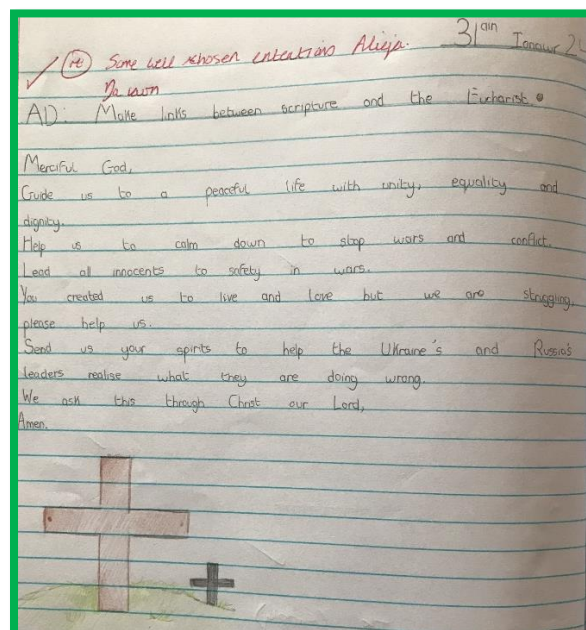 31ain Ionawr 24
Some well chosen intentions Alicja.
Da iawn
AD: Make links between scripture and the Eucharist.
Merciful God,
Guide us to a peaceful life with unity, equality and
dignity.
Help us to calm down to stop wars and conflict.
Lead all innocents to safety in wars.
You created us to live and love but we are struggling,
please help us.
Send us your spirits to help the Ukraine's and Russia's
leaders realise what they are doing wrong.
We ask this through Christ our Lord,
Amen.